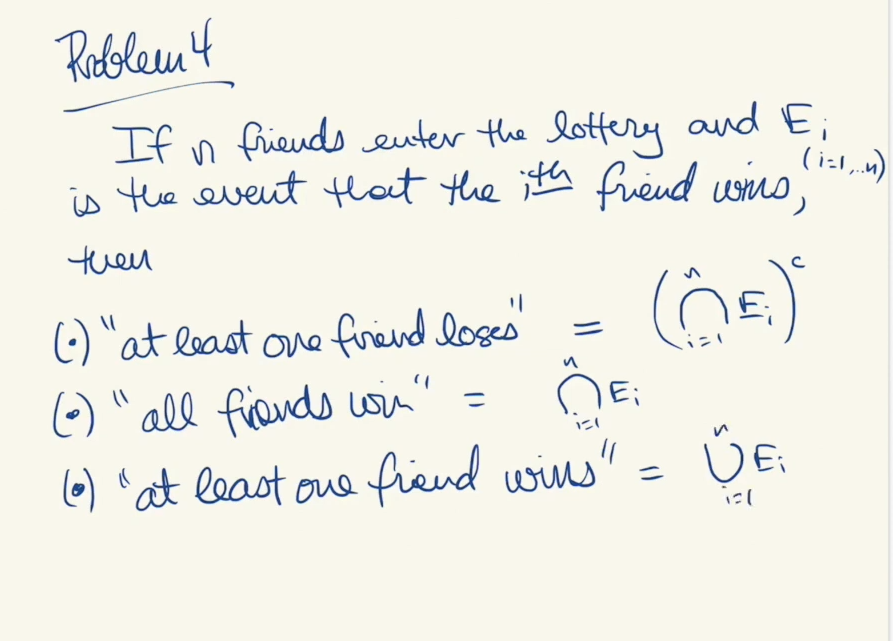 Problem 4
If n friends enter the lottery and E_i
(i=1,...n)
is the event that the ith friend wins,
then
(•) "at least one friend loses" = (⋂_{i=1}^{n} E_i)^c
(•) "all friends win" = ⋂_{i=1}^{n} E_i
(•) "at least one friend wins" = ⋃_{i=1}^{n} E_i